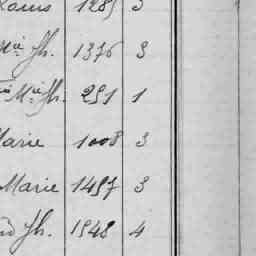 Louis 1285 3
Mie Jh. 1376 3
Mie Jh. 291 1
Marie 1008 3
Marie 1497 3
Jh. 1548 4